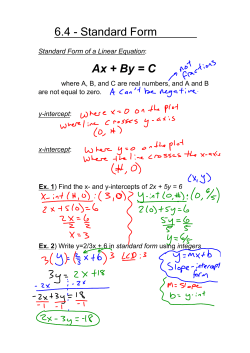 6.4 - Standard Form
Standard Form of a Linear Equation:
Ax + By = C
not fractions
where A, B, and C are real numbers, and A and B
are not equal to zero. A can't be negative
y-intercept: where x=0 on the plot
where line crosses y-axis
(0, #)
x-intercept: where y=0 on the plot
where the line crosses the x-axis
(#, 0)
(x, y)
Ex. 1) Find the x- and y-intercepts of 2x + 5y = 6
x-int (#, 0): (3, 0)
2x+5(0)=6
2x = 6
2 2
x = 3
y-int: (0, #): (0, 6/5)
2(0)+5y=6
5y = 6
5 5
y = 6/5
Ex. 2) Write y=2/3x + 6 in standard form using integers
3(y) = (2/3x + 6)3 LCD: 3
3y = 2x +18
-2x -2x
-2x+3y = 18
-1 -1 -1
2x - 3y = -18
y = mx+b
Slope-intercept
form
m = slope
b = y-int